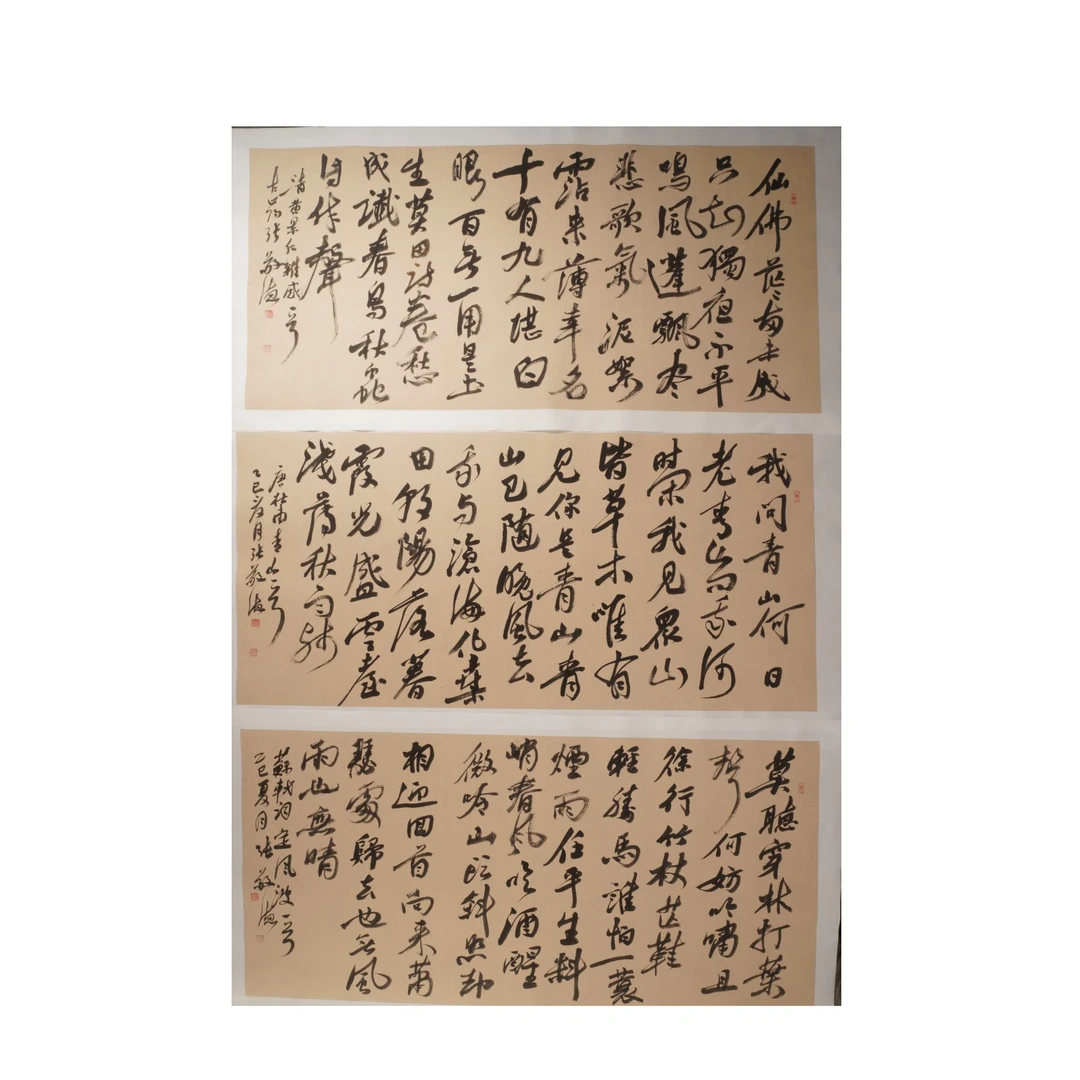 仙佛茫茫兩未成
只知獨夜不平
鳴風蓬飄盡
悲歌氣泥絮
霑來薄幸名
十有九人堪白
眼百无一用是书
生莫因詩卷愁
成讖春鳥秋蟲
自作聲
清黃景仁雜感一首
張敬海
我问青山何日
老青山问我何
时闲我見眾山
皆草木唯有
見你是青山青
山已隨晚风去
我与滄海化桑
田朝陽落暮
霞光盛雲卷
淺薄秋雨
唐杜甫青山一首
乙巳夏月張敬海
莫聽穿林打葉
聲何妨吟嘯且
徐行竹杖芒鞋
輕勝馬誰怕一蓑
煙雨任平生料
峭春风吹酒醒
微冷山头斜照却
相迎回首向来蕭
瑟處歸去也无風
雨也無晴
蘇軾词定风波一首
乙巳夏月張敬海